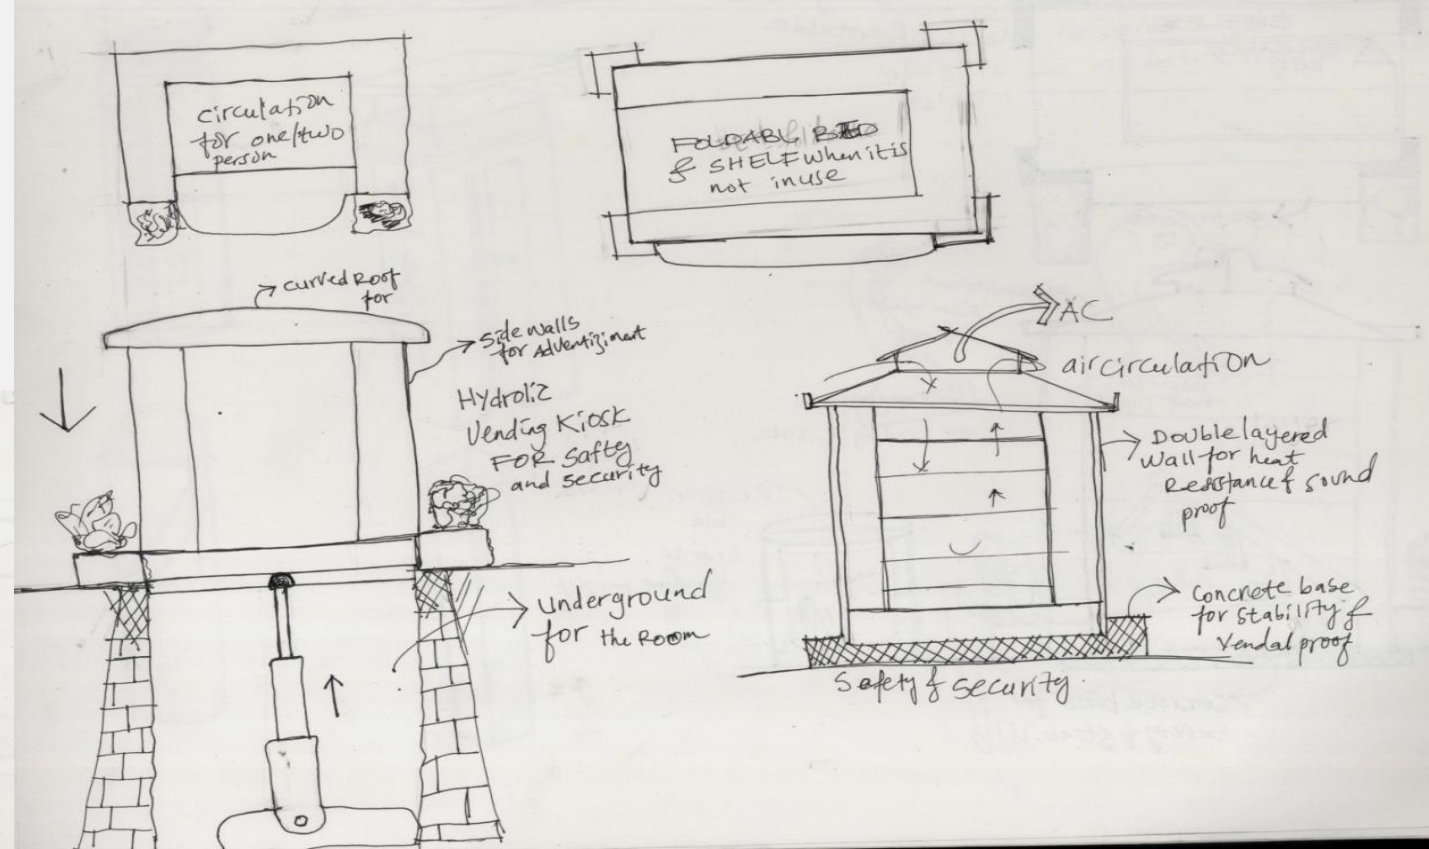 circulation
for one/two
person
FOLDABL BED
& SHELF when it is
not in use
curved Roof
for
side walls
for Advertiziment
Hydrolic
Vending Kiosk
FOR Safty
and security
underground
for the Room
AC
air circulation
Double layered
wall for heat
Resistance & sound
proof
Concrete base
for stability &
Vendal proof
Safety & security